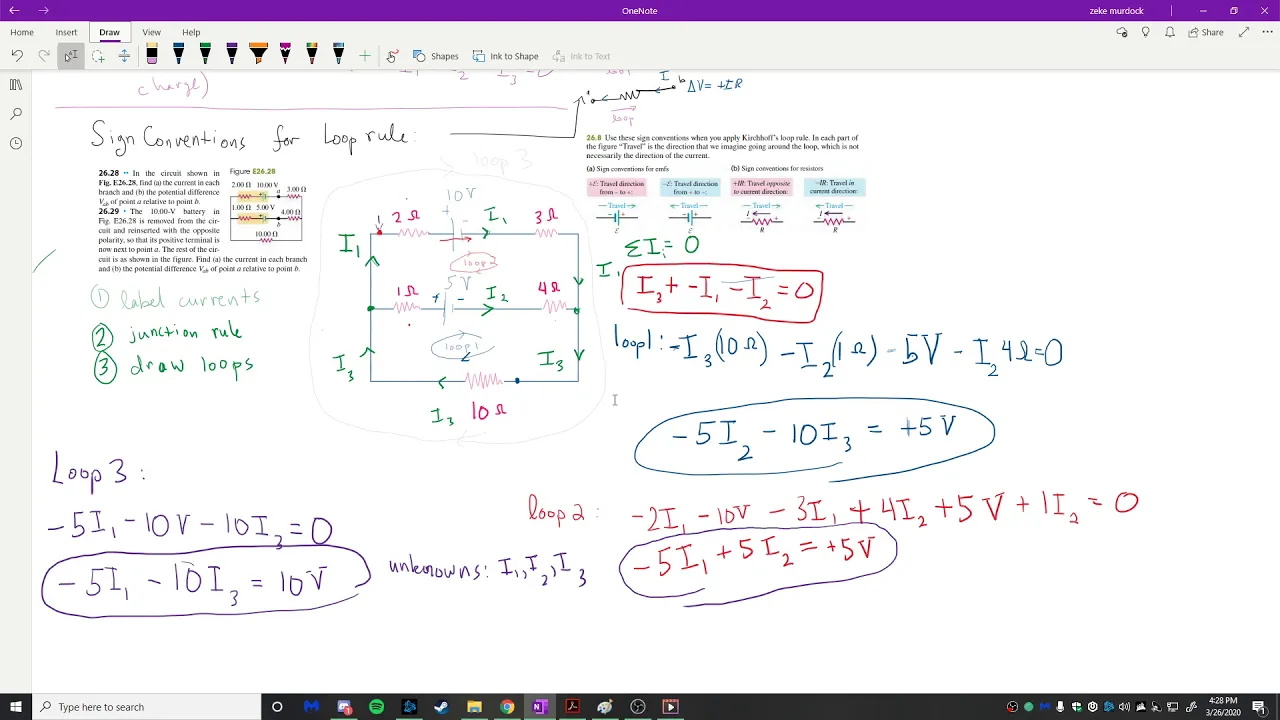 OneNote
zeke murdock
Home Insert Draw View Help
Shapes Ink to Shape Ink to Text Share
charge)
loop
I b ΔV= +IR
a
loop
Sign Conventions for Loop rule:
26.28 •• In the circuit shown in
Fig. E26.28, find (a) the current in each
branch and (b) the potential difference
Vab of point a relative to point b.
26.29 • The 10.00-V battery in
Fig. E26.28 is removed from the cir-
cuit and reinserted with the opposite
polarity, so that its positive terminal is
now next to point a. The rest of the cir-
cuit is as shown in the figure. Find (a) the current in each branch
and (b) the potential difference Vab of point a relative to point b.
Figure E26.28
2.00 Ω 10.00 V
a 3.00 Ω
1.00 Ω 5.00 V
4.00 Ω
b
10.00 Ω
① label currents
② junction rule
③ draw loops
loop 3
10V
2Ω + - I₁ 3Ω
I₁
loop2
5V
1Ω + - I₂ 4Ω
loop1
I₃ I₃
I₃ 10Ω
26.8 Use these sign conventions when you apply Kirchhoff's loop rule. In each part of
the figure "Travel" is the direction that we imagine going around the loop, which is not
necessarily the direction of the current.
(a) Sign conventions for emfs
(b) Sign conventions for resistors
+ℰ: Travel direction
from – to +:
–ℰ: Travel direction
from + to –:
+IR: Travel opposite
to current direction:
–IR: Travel in
current direction:
Travel Travel Travel Travel
- + - + I - + I - +
ℰ ℰ R R
ΣIᵢ = 0
I₁
I₃ + -I₁ - I₂ = 0
loop1: -I₃(10Ω) - I₂(1Ω) - 5V - I₂4Ω=0
-5I₂ - 10I₃ = +5V
Loop 3:
-5I₁ -10V -10I₃ = 0
-5I₁ - 10I₃ = 10V
unknowns: I₁, I₂, I₃
loop2: -2I₁ -10V - 3I₁ + 4I₂ + 5V + 1I₂ = 0
-5I₁ + 5I₂ = +5V
Type here to search
4:28 PM
3/26/2020